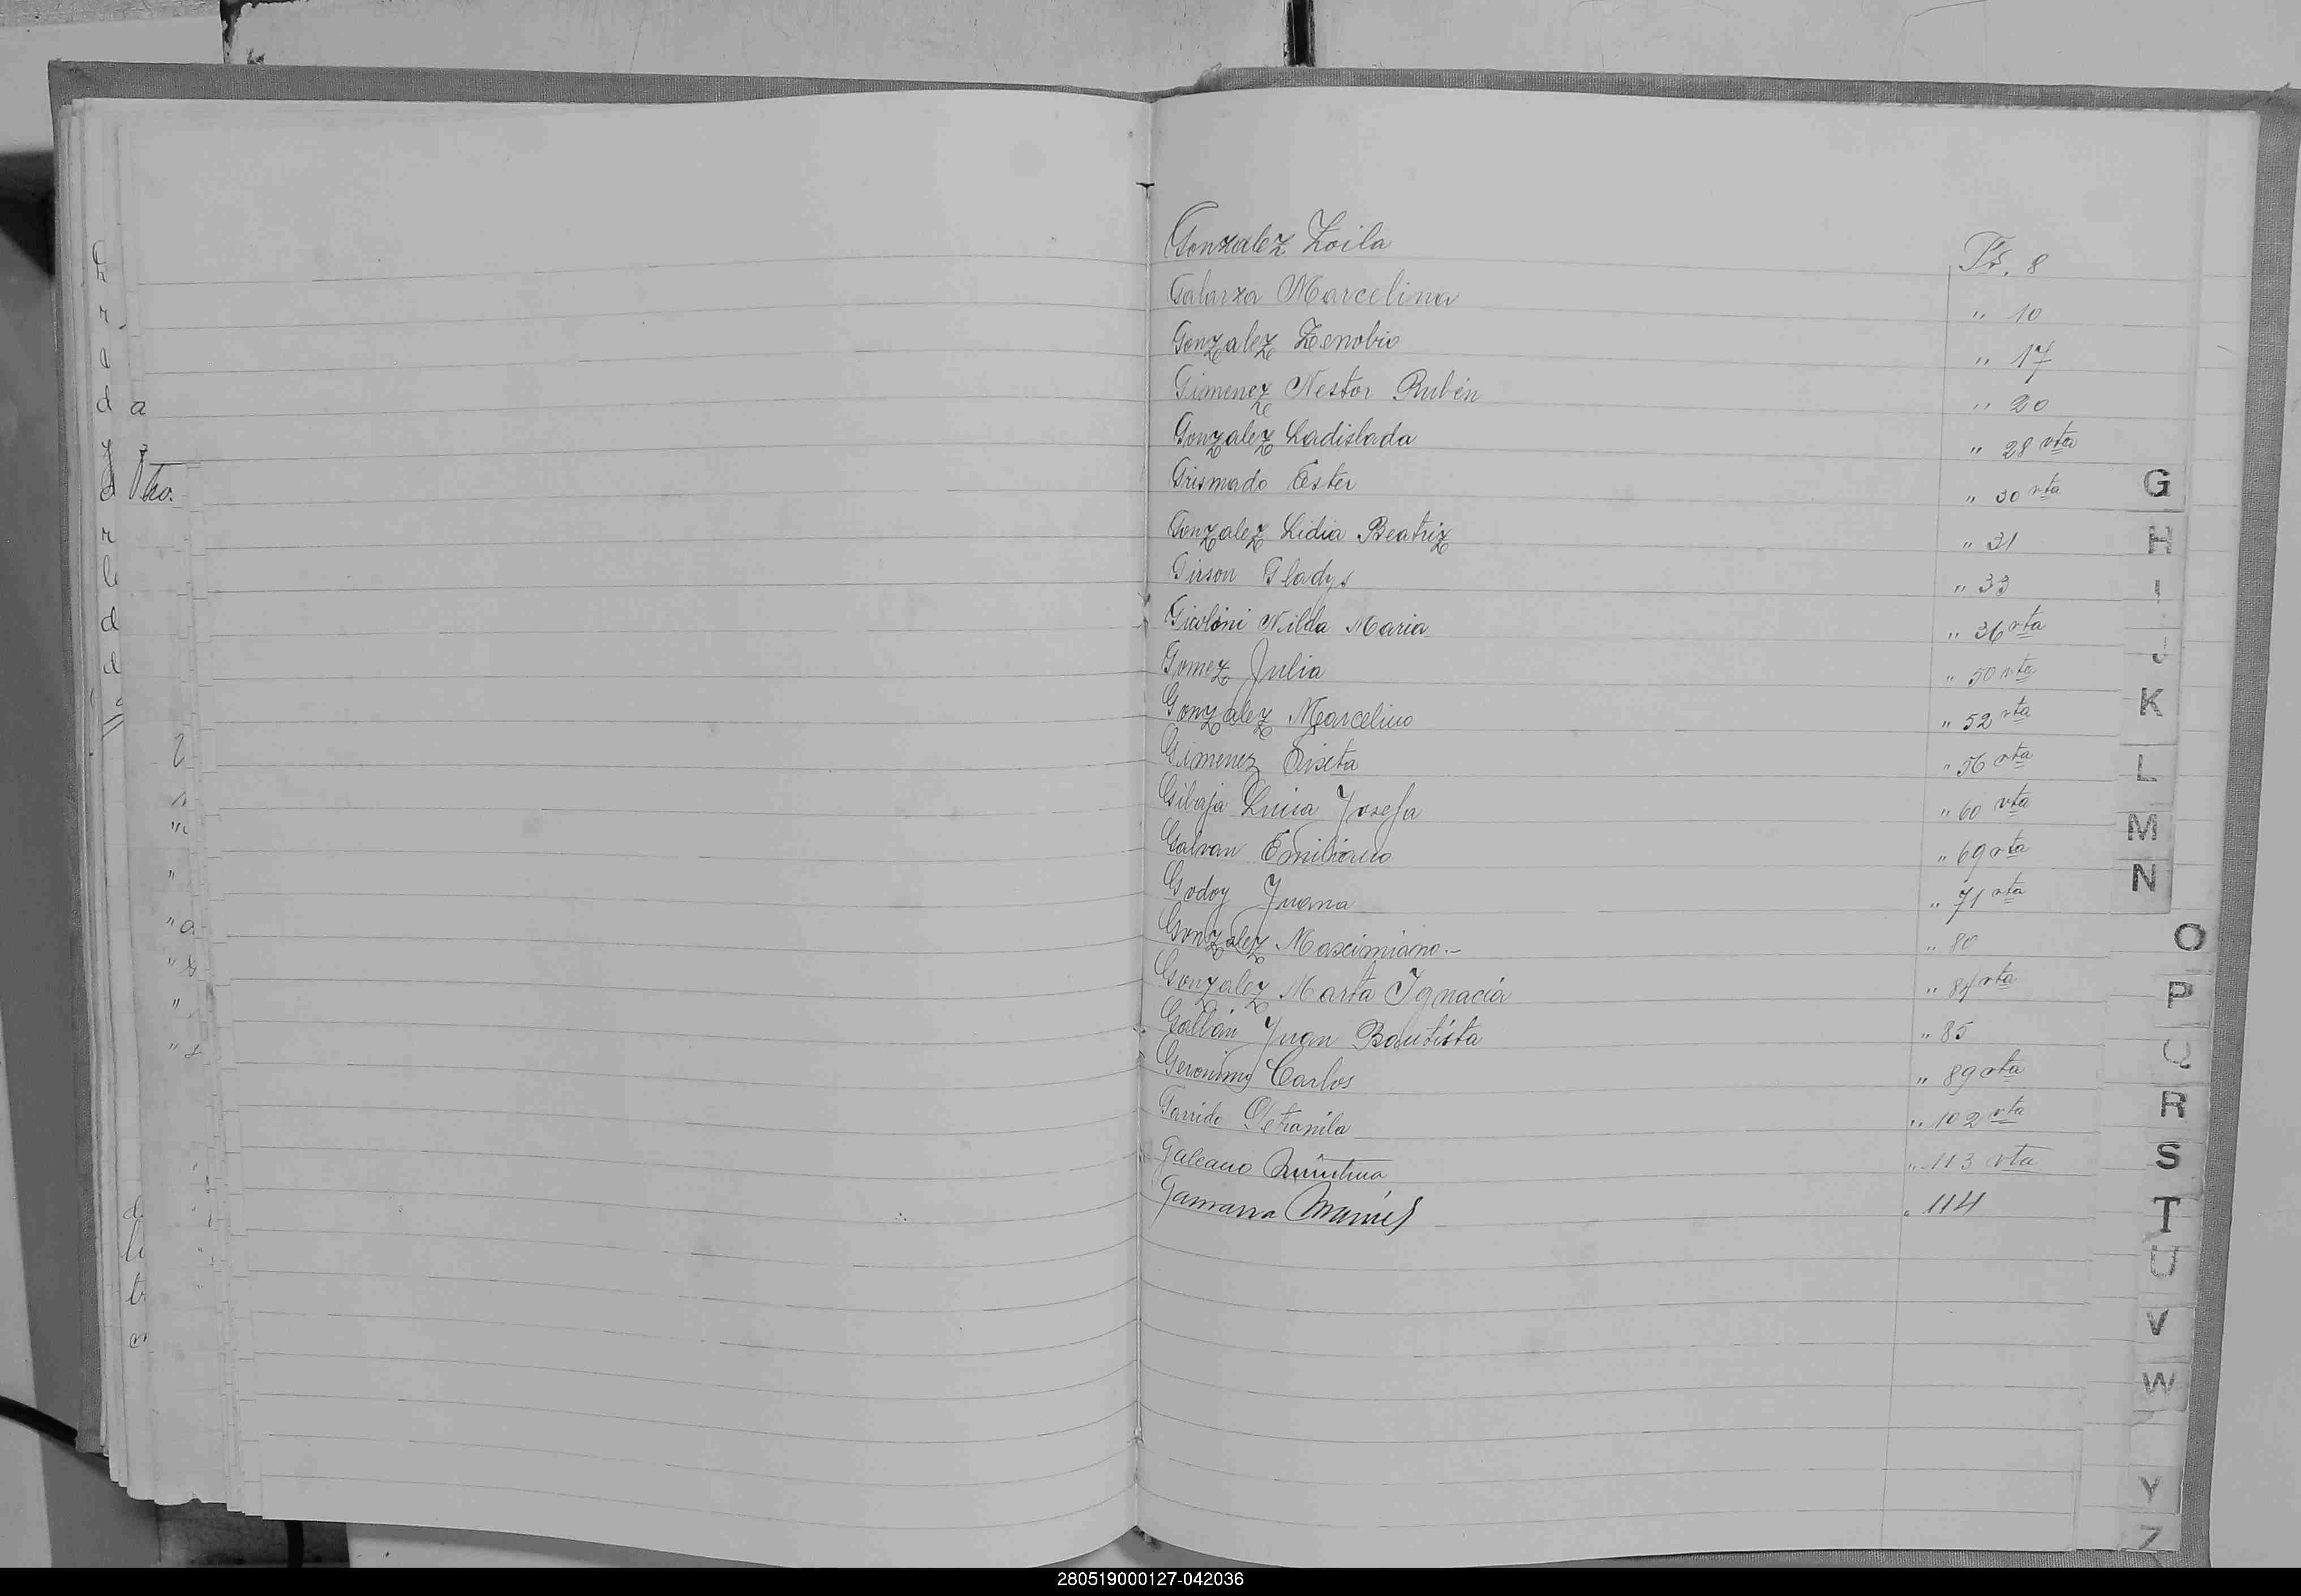 Gonzalez Zoila Fs. 8
Galarza Marcelina " 10
Gonzalez Zenobio " 17
Gimenez Nestor Rubén " 20
Gonzalez Ladislada " 28 vta
Grismado Ester " 30 vta
Gonzalez Lidia Beatriz " 31
Girson Gladys " 33
Giolini Nilda Maria " 36 vta
Gomez Julia " 50 vta
Gonzalez Marcelino " 52 vta
Gimenez " 56 vta
Gibaja Luisa Josefa " 60 vta
Galvan Emiliano " 69 vta
Godoy Juana " 71 vta
Gonzalez Maximiano.- " 80
Gonzalez Marta Ignacia " 84 vta
Galbán Juan Bautista " 85
Geronimo Carlos " 89 vta
Garrido Petronila " 102 vta
Galeano " 113 vta
Gamarra Manuel " 114
G
H
I
J
K
L
M
N
O
P
Q
R
S
T
U
V
W
Y
Z
280519000127-042036